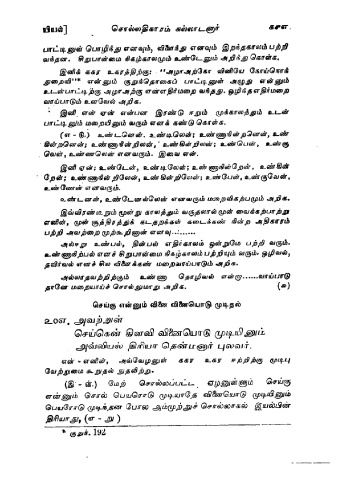 யியம்] சொல்லதிகாரம் கல்லாடனார் ௧௮௭
பாட்டினுல் பொழிந்து எனவும், விரைந்து எனவும் இறந்தகாலம் பற்றி
வந்தன. சிறுபான்மை நிகழ்காலமும் உண்டேனும் அறிந்து கொள்க.
இனிக் ககர உகரத்திற்கு: “அழாஅற்கோ வினியே கோய்நொந்
துறைவி” என்னும் குறுந்தொகைப் பாட்டினுள் அழுது என்னும்
உடன்பாட்டிற்கு அழாஅற்கு எனஎதிர்மறை வந்தது. ஒழிந்தஎதிர்மறை
வாய்பாடும் உளவேல் அறிக.
இனி என் ஏன் என்பன இரண்டு ஈறும் முக்காலத்தும் உடன்
பாட்டினும் மறையினும் வரும் எனக் கண்டு கொள்க.
(எ - டு.) உண்டனென், உண்டிலென்; உண்ணாநின்றனென், உண்
கின்றனென்; உண்ணாநின்றிலன், உண்கின்றிலன்; உண்பென், உண்கு
வென், உண்ணலென் எனவரும். இவை என்.
இனி ஏன்; உண்டேன், உண்டிலேன்; உண்ணாநின்றேன், உண்கின்
றேன்; உண்ணாநின்றிலேன், உண்கின்றிலேன்; உண்பேன், உண்குவேன்,
உண்ணேன் எனவரும்.
உண்டனன், உண்டேனல்லென் எனவரும் மறைவிகற்பமும் அறிக.
இவ்விரண்டீறும் மூன்று காலத்தும் வருதலால் முன் வைக்கற்பாற்று
எனின், முன் சூத்திரத்துக் கடதறக்கள் கடைக்கண் நின்ற அதிகாரம்
பற்றி அவற்றை முற்கூறினான் எனவ......
அல்ஈறு உண்பல், தின்பல் எதிர்காலம் ஒன்றுமே பற்றி வரும்.
உண்ணாநிற்பல் எனச் சிறுபான்மை நிகழ்காலம் பற்றியும் வரும். ஒழிவல்,
தவிர்வல் எனச் சில வினைக்கண் மறைவாய்பாடும் அறிக.
அல்லாதவற்றிற்கும் உண்ணா தொழிவல் என்ற......வாய்பாடு
தானே மறையாய்ச் சொல்லுமாறு அறிக. (௬)
செய்கு என்னும் வினை வினையொடு முடிதல்
௨௦௭. அவற்றுள்
செய்கென் கிளவி வினையொடு முடியினும்
அவ்வியல் திரியா தென்மனார் புலவர்.
என் - எனின், அவ்வேழனுள் ககர உகர ஈற்றிற்கு முடிபு
வேற்றுமை கூறுதல் நுதலிற்று.
(இ - ள்.) மேற் சொல்லப்பட்ட ஏழனுள்ளும் செய்கு
என்னும் சொல் பெயரொடு முடியாதே வினையொடு முடியினும்
பெயரோடு முடிந்தன போல அம்முற்றுச் சொல்லாகல் இயல்பின்
திரியாது, (எ - று.)
* குறுந். 192